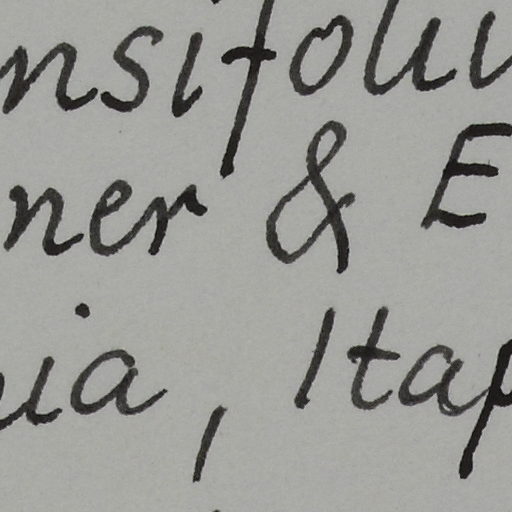 nsifoliu
ner & E
ia, Itap